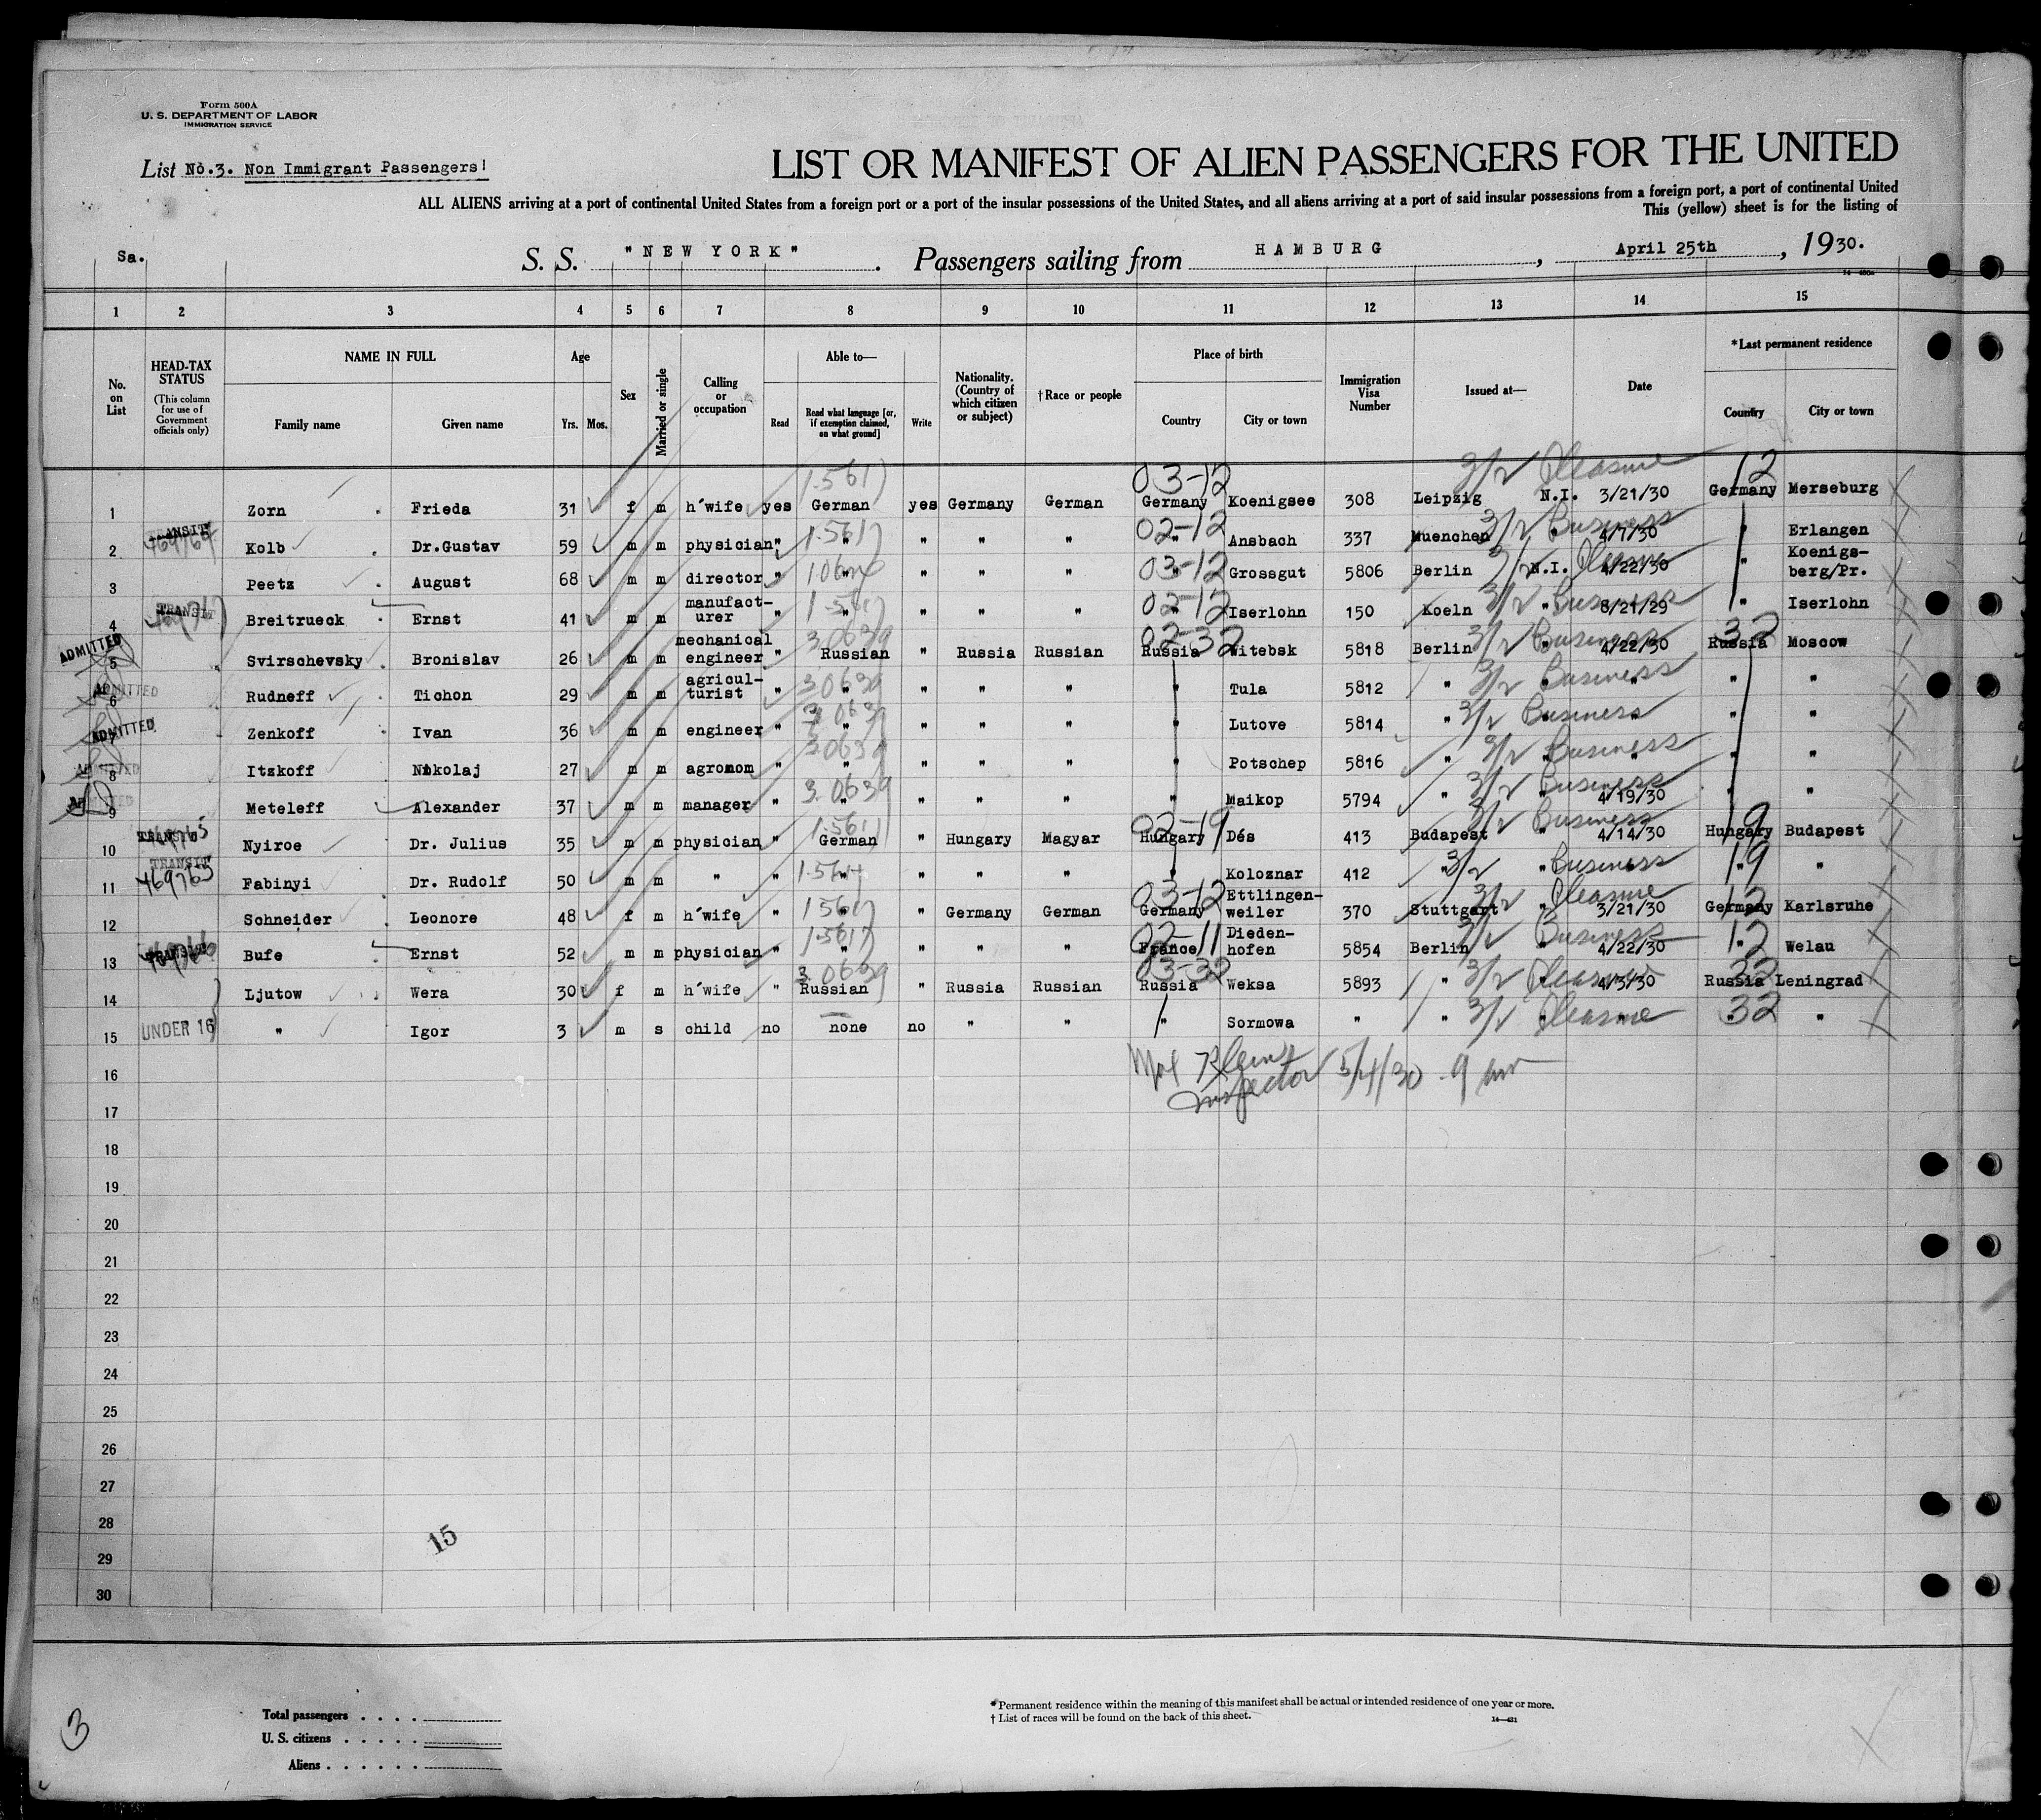 Form 500A
U. S. DEPARTMENT OF LABOR
IMMIGRATION SERVICE
List No.3. Non Immigrant Passengers!
LIST OR MANIFEST OF ALIEN PASSENGERS FOR THE UNITED
ALL ALIENS arriving at a port of continental United States from a foreign port or a port of the insular possessions of the United States, and all aliens arriving at a port of said insular possessions from a foreign port, a port of continental United
This (yellow) sheet is for the listing of
Sa. S. S. "NEW YORK". Passengers sailing from HAMBURG, April 25th, 1930.
1 2 3 4 5 6 7 8 9 10 11 12 13 14 15
No. on List
HEAD-TAX STATUS (This column for use of Government officials only)
NAME IN FULL Family name Given name
Age Yrs. Mos.
Sex
Married or single
Calling or occupation
Able to— Read Read what language [or, if exemption claimed, on what ground] Write
Nationality. (Country of which citizen or subject)
†Race or people
Place of birth Country City or town
Immigration Visa Number
Issued at—
Date
*Last permanent residence Country City or town
3/2 Pleasure
1 Zorn Frieda 31 f m h'wife yes German yes Germany German 03-12 Germany Koenigsee 308 Leipzig N.I. 3/21/30 12 Germany Merseburg
2 TRANSIT Kolb Dr.Gustav 59 m m physician " " " " " 02-12 " Ansbach 337 Muenchen 3/2 Business " 4/7/30 " Erlangen
3 Peetz August 68 m m director " " " " " 03-12 " Grossgut 5806 Berlin 3/2 N.I. Pleasure 4/22/30 " Koenigs-berg/Pr.
4 TRANSIT Breitrueck Ernst 41 m m manufact-urer " " " " " 02-12 " Iserlohn 150 Koeln 3/2 Business " 8/21/29 " Iserlohn
ADMITTED 5 Svirschevsky Bronislav 26 m m mechanical engineer " 3.0639 Russian " Russia Russian 02-32 Russia Witebsk 5818 Berlin 3/2 Business " 4/22/30 32 Russia Moscow
ADMITTED 6 Rudneff Tichon 29 m m agricul-turist " 30639 " " " " " Tula 5812 " 3/2 Business " " " "
ADMITTED Zenkoff Ivan 36 m m engineer " " " " " " Lutove 5814 " 3/2 Business " " " "
ADMITTED 8 Itzkoff Nikolaj 27 m m agronom " 30639 " " " " " Potschep 5816 " 3/2 Business " " " "
9 Meteleff Alexander 37 m m manager " 3.0639 " " " " " Maikop 5794 " 3/2 Business " 4/19/30 " "
10 TRANSIT Nyiroe Dr. Julius 35 m m physician " German " Hungary Magyar 02-19 Hungary Dés 413 Budapest 3/2 Business " 4/14/30 19 Hungary Budapest
11 TRANSIT 469765 Fabinyi Dr. Rudolf 50 m m " " " " " " " Koloznar 412 " 3/2 " Business 19 " "
12 Schneider Leonore 48 f m h'wife " " " Germany German 03-12 Germany Ettlingen-weiler 370 Stuttgart 3/2 Pleasure " 3/21/30 12 Germany Karlsruhe
13 TRANSIT Bufe Ernst 52 m m physician " " " " " 02-11 France Dieden-hofen 5854 Berlin Business " 4/22/30 12 " Welau
14 Ljutow Wera 30 f m h'wife " 3.0639 Russian " Russia Russian 03-32 Russia Weksa 5893 " 3/2 Pleasure 4/3/30 32 Russia Leningrad
15 UNDER 16 " Igor 3 m s child no none no " " " Sormowa " " 3/2 Pleasure " 32 " "
16 Inspector 5/4/30 9 am
17
18
19
20
21
22
23
24
25
26
27
28
29
30
15
3
Total passengers . . . .
U. S. citizens . . . . .
Aliens . . . . . .
*Permanent residence within the meaning of this manifest shall be actual or intended residence of one year or more.
† List of races will be found on the back of this sheet.
14—421